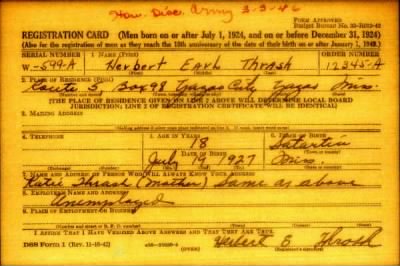 Hon. Disc. Army 3-3-46
FORM APPROVED
Budget Bureau No. 33-R012-42
REGISTRATION CARD (Men born on or after July 1, 1924, and on or before December 31, 1924)
(Also for the registration of men as they reach the 18th anniversary of the date of their birth on or after January 1, 1925.)
SERIAL NUMBER 1. NAME (Print) ORDER NUMBER
W-599-A Herbert Earl Thrash 12345-A
(First) (Middle) (Last)
2. PLACE OF RESIDENCE (Print)
Route 5, Box 98 Yazoo City Yazoo Miss.
[THE PLACE OF RESIDENCE GIVEN ON LINE 2 ABOVE WILL DETERMINE LOCAL BOARD
JURISDICTION; LINE 2 OF REGISTRATION CERTIFICATE WILL BE IDENTICAL]
3. MAILING ADDRESS
4. TELEPHONE 5. AGE IN YEARS 6. PLACE OF BIRTH
18 Satartia
DATE OF BIRTH
July 19 1927 Miss.
7. NAME AND ADDRESS OF PERSON WHO WILL ALWAYS KNOW YOUR ADDRESS
Katie Thrash (Mother) Same as above
8. EMPLOYER'S NAME AND ADDRESS
Unemployed
9. PLACE OF EMPLOYMENT OR BUSINESS
I AFFIRM THAT I HAVE VERIFIED ABOVE ANSWERS AND THAT THEY ARE TRUE.
DSS Form 1 (Rev. 11-16-42) (OVER) Herbert E Thrash